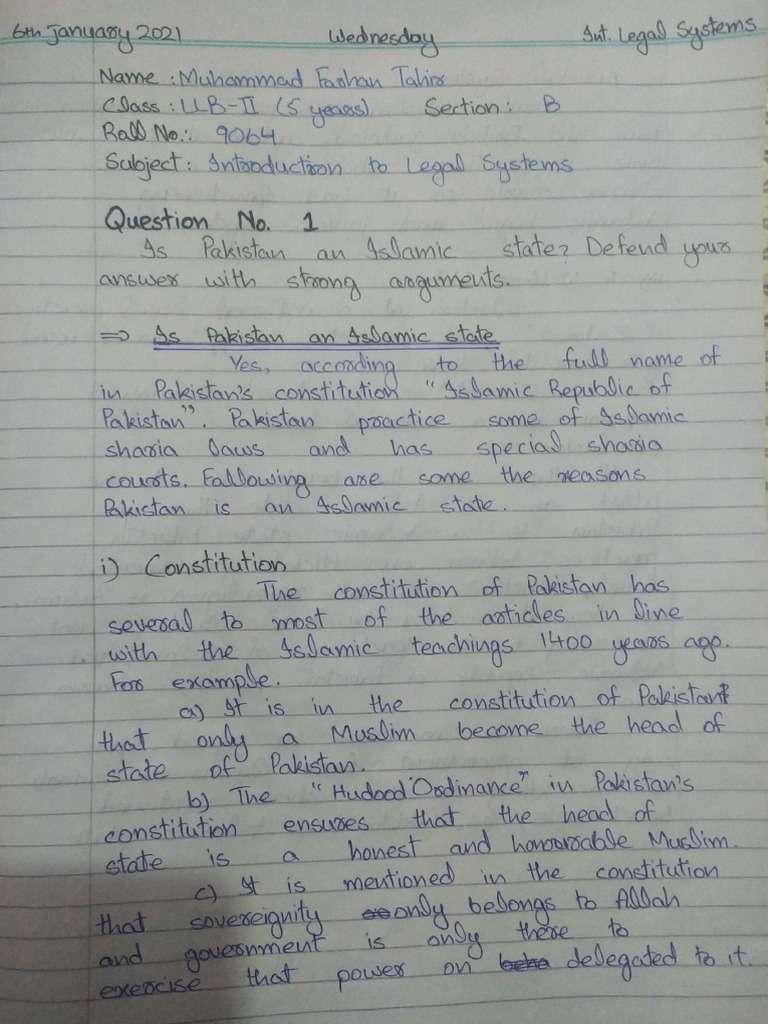 6th January 2021 Wednesday Int. Legal Systems
Name : Muhammad Farhan Tahir
Class : LLB-II (5 years) Section : B
Roll No.: 9064
Subject : Introduction to Legal Systems
Question No. 1
Is Pakistan an Islamic state? Defend your
answer with strong arguments.
⇒ Is Pakistan an Islamic state
Yes, according to the full name of
in Pakistan's constitution "Islamic Republic of
Pakistan". Pakistan practice some of Islamic
sharia laws and has special sharia
courts. Following are some the reasons
Pakistan is an Islamic state.
i) Constitution
The constitution of Pakistan has
several to most of the articles in line
with the Islamic teachings 1400 years ago.
For example.
a) It is in the constitution of Pakistan
that only a Muslim become the head of
state of Pakistan.
b) The "Hudood Ordinance" in Pakistan's
constitution ensures that the head of
state is a honest and honourable Muslim.
c) It is mentioned in the constitution
that sovereignity only belongs to Allah
and government is only there to
exercise that power on delegated to it.